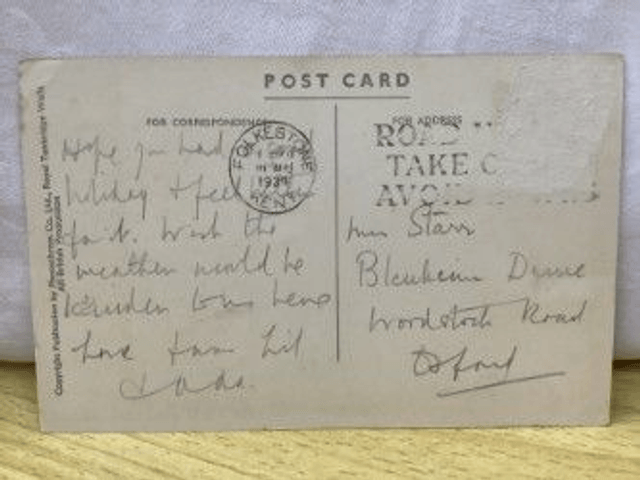 POST CARD
FOR CORRESPONDENCE
FOR ADDRESS
Copyright Publication by Photochrom Co. Ltd., Royal Tunbridge Wells
All British Production
FOLKESTONE
1939
KENT
ROAD
TAKE C
AVOID
Hope you had
holiday & feel
for it. Wish the
weather would be
kinder to us here
Love from Lil
Miss Starr
Blenheim Drive
Woodstock Road
Oxford